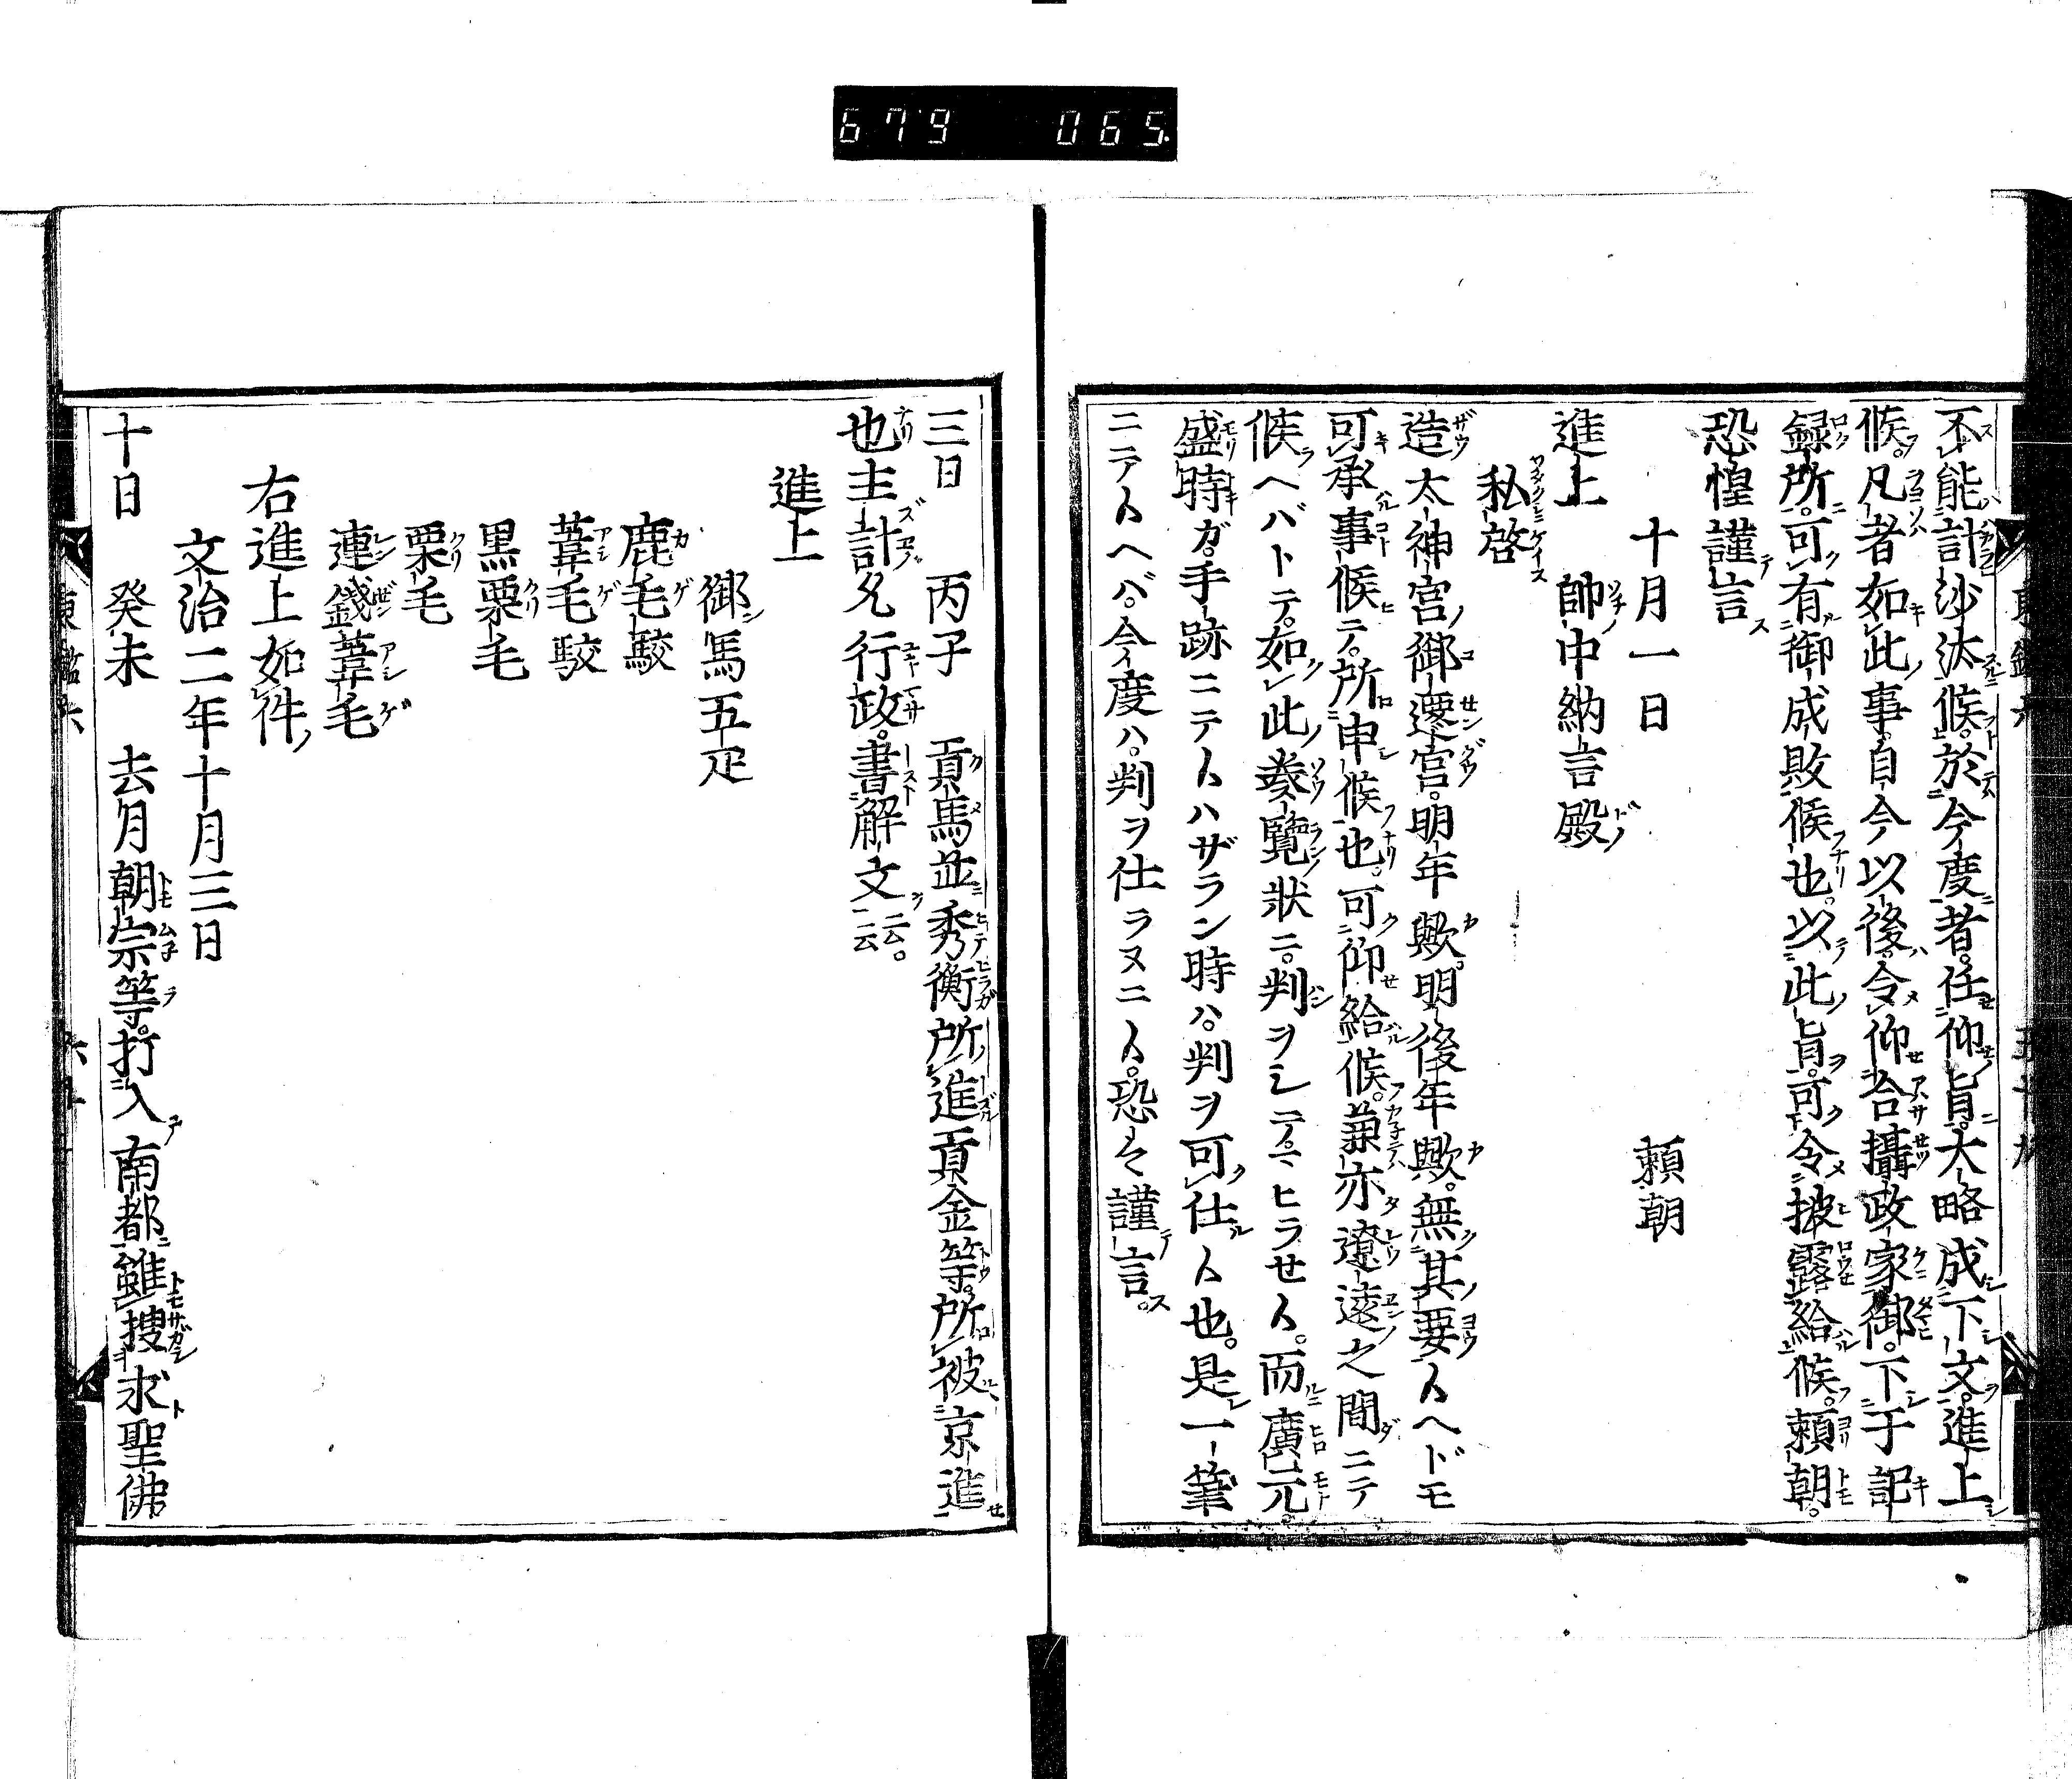 679 065
不能計沙汰候。於今度者。任仰旨。大略成下文。進上
候。凡者如此事。自今以後。令仰合攝政家御。下于記
録所。可有御成敗候也。以此旨。可令披露給候。頼朝。
恐惶謹言
十月一日 頼朝
進上 帥中納言殿
私啓
造太神宮御遷宮。明年歟。明後年歟。無其要人ヘドモ
可承事候テ。所申候也。可仰給候。兼亦遼遠之間ニテ
候ヘバトテ。如此奏覽狀ニ。判ヲシテマヒラせ人。而廣元。
盛時ガ。手跡ニテ人ハザラン時ハ。判ヲ可仕人也。是一筆
ニテ人ヘバ。今度ハ。判ヲ仕ラヌニ人。恐々謹言。
三日 丙子 貢馬並秀衡所進貢金等。所被京進
也主計允行政。書解文云云。
進上
御馬五疋
鹿毛駮
葦毛駮
黒栗毛
栗毛
連錢葦毛
右進上如件
文治二年十月三日
十日 癸未 去月朝宗等。打入南都雖搜求聖佛